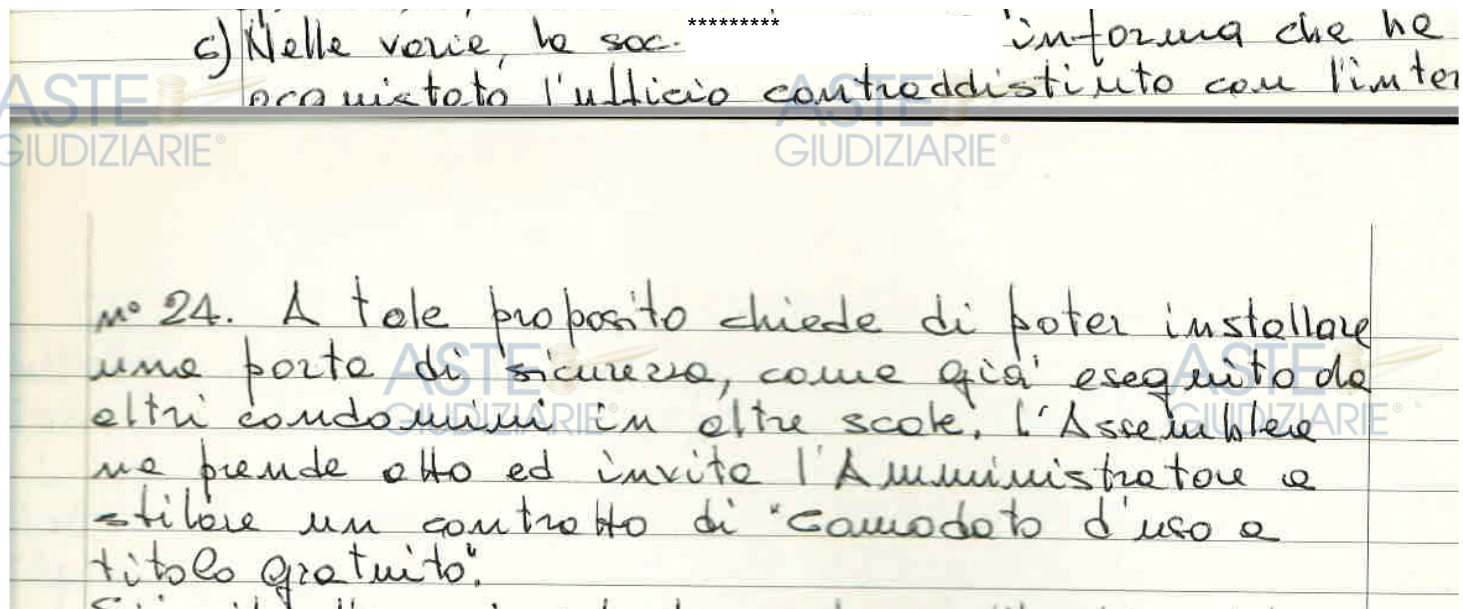 c) Nelle varie, la soc. ********* informa che ha
acquistato l'ufficio contraddistinto con l'inter
ASTE GIUDIZIARIE®
ASTE GIUDIZIARIE®
n° 24. A tale proposito chiede di poter installare
una porta di sicurezza, come già eseguito da
altri condomini in altre scale. L'Assemblea
ne prende atto ed invita l'Amministratore a
stilare un contratto di "Comodato d'uso a
titolo gratuito".
ASTE GIUDIZIARIE®
ASTE GIUDIZIARIE®